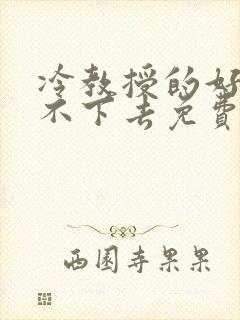 冷教授的好
不下去免费
西园寺果果